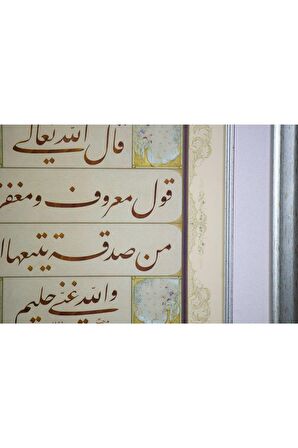 قال الله تعالى
قول معروف ومغفر
من صدقة يتبعها ا
والله غني حليم